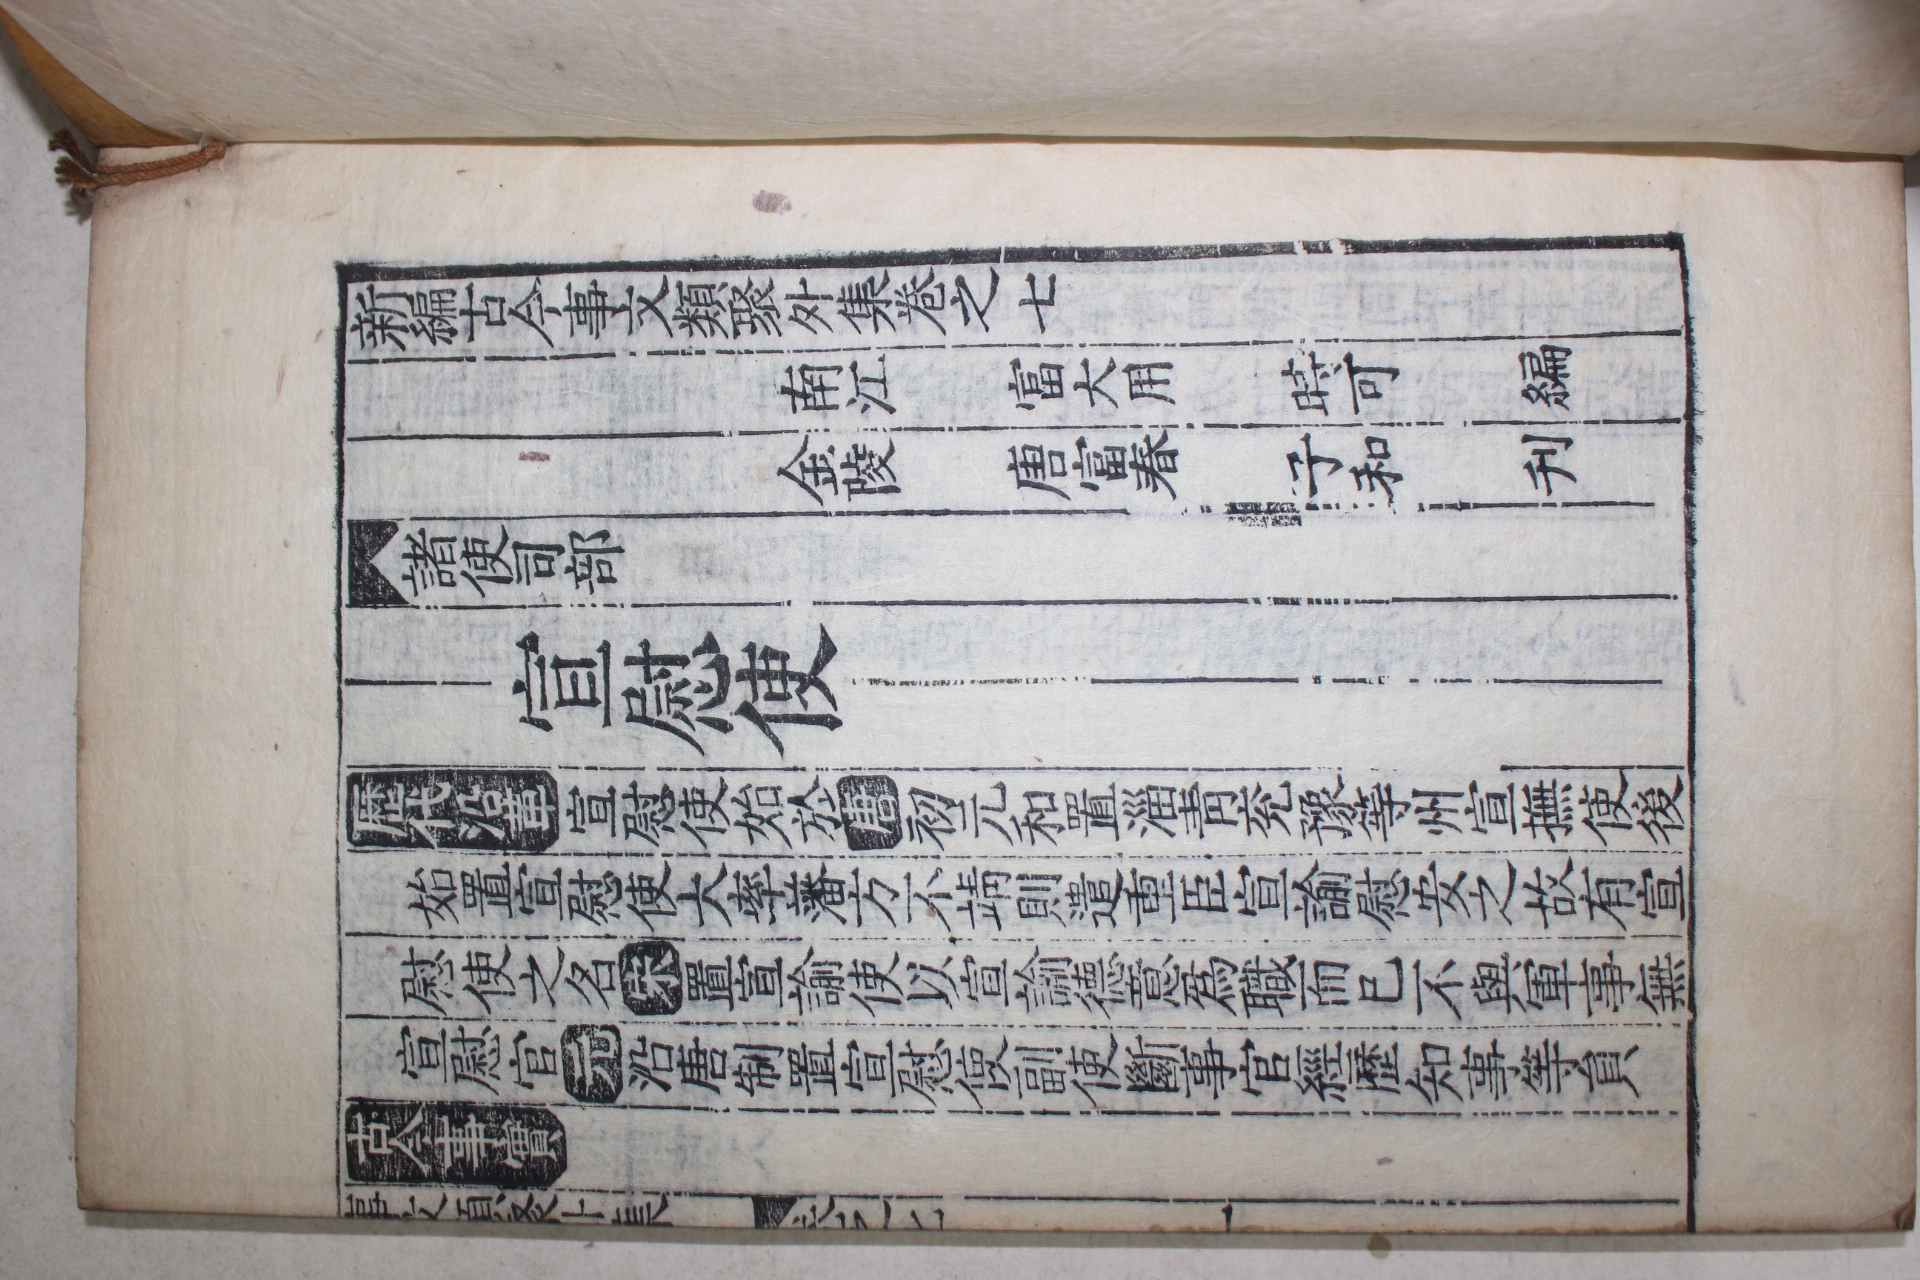 新編古今事文類聚外集卷之七
南江 富大用 時可 編
金陵 唐富春 子和 刋
諸使司部
宣慰使
歷代沿革 宣慰使始於唐初元和置淄青兖豫等州宣撫使後
始置宣慰使大率藩方不靖則遣重臣宣諭慰安之故有宣
慰使之名宋置宣諭使以宣諭德意爲職而已不與軍事無
宣慰官元沿唐制置宣慰使副使斷事官經歷知事等員
古今事實
事文類聚外集 卷之七 一